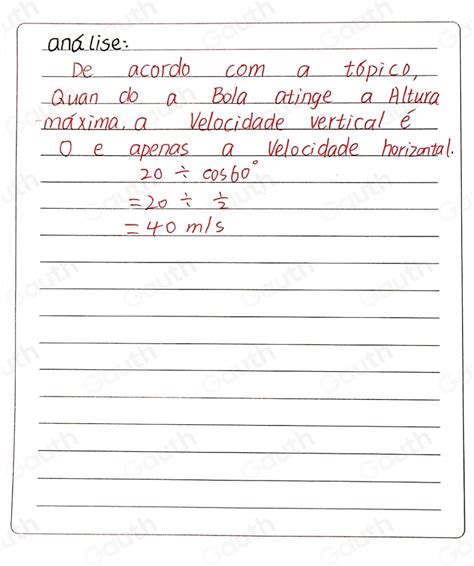 análise:
De acordo com a tópico,
Quan do a Bola atinge a Altura
máxima, a Velocidade vertical é
0 e apenas a Velocidade horizontal.
20 ÷ cos60°
= 20 ÷ 1/2
= 40 m/s